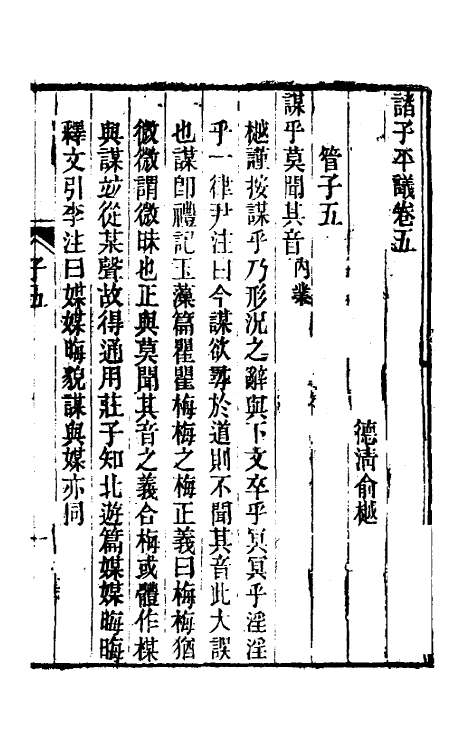 諸子平議卷五
德清俞樾
管子五
謀乎莫聞其音內業
樾謹按謀乎乃形況之辭與下文卒乎冥冥乎淫淫
乎一律尹注曰今謀欲尋於道則不聞其音此大誤
也謀卽禮記玉藻篇瞿瞿梅梅之梅正義曰梅梅猶
微微謂微昧也正與莫聞其音之義合梅或體作楳
與謀並從某聲故得通用莊子知北遊篇媒媒晦晦
釋文引李注曰媒媒晦貌謀與媒亦同
子五